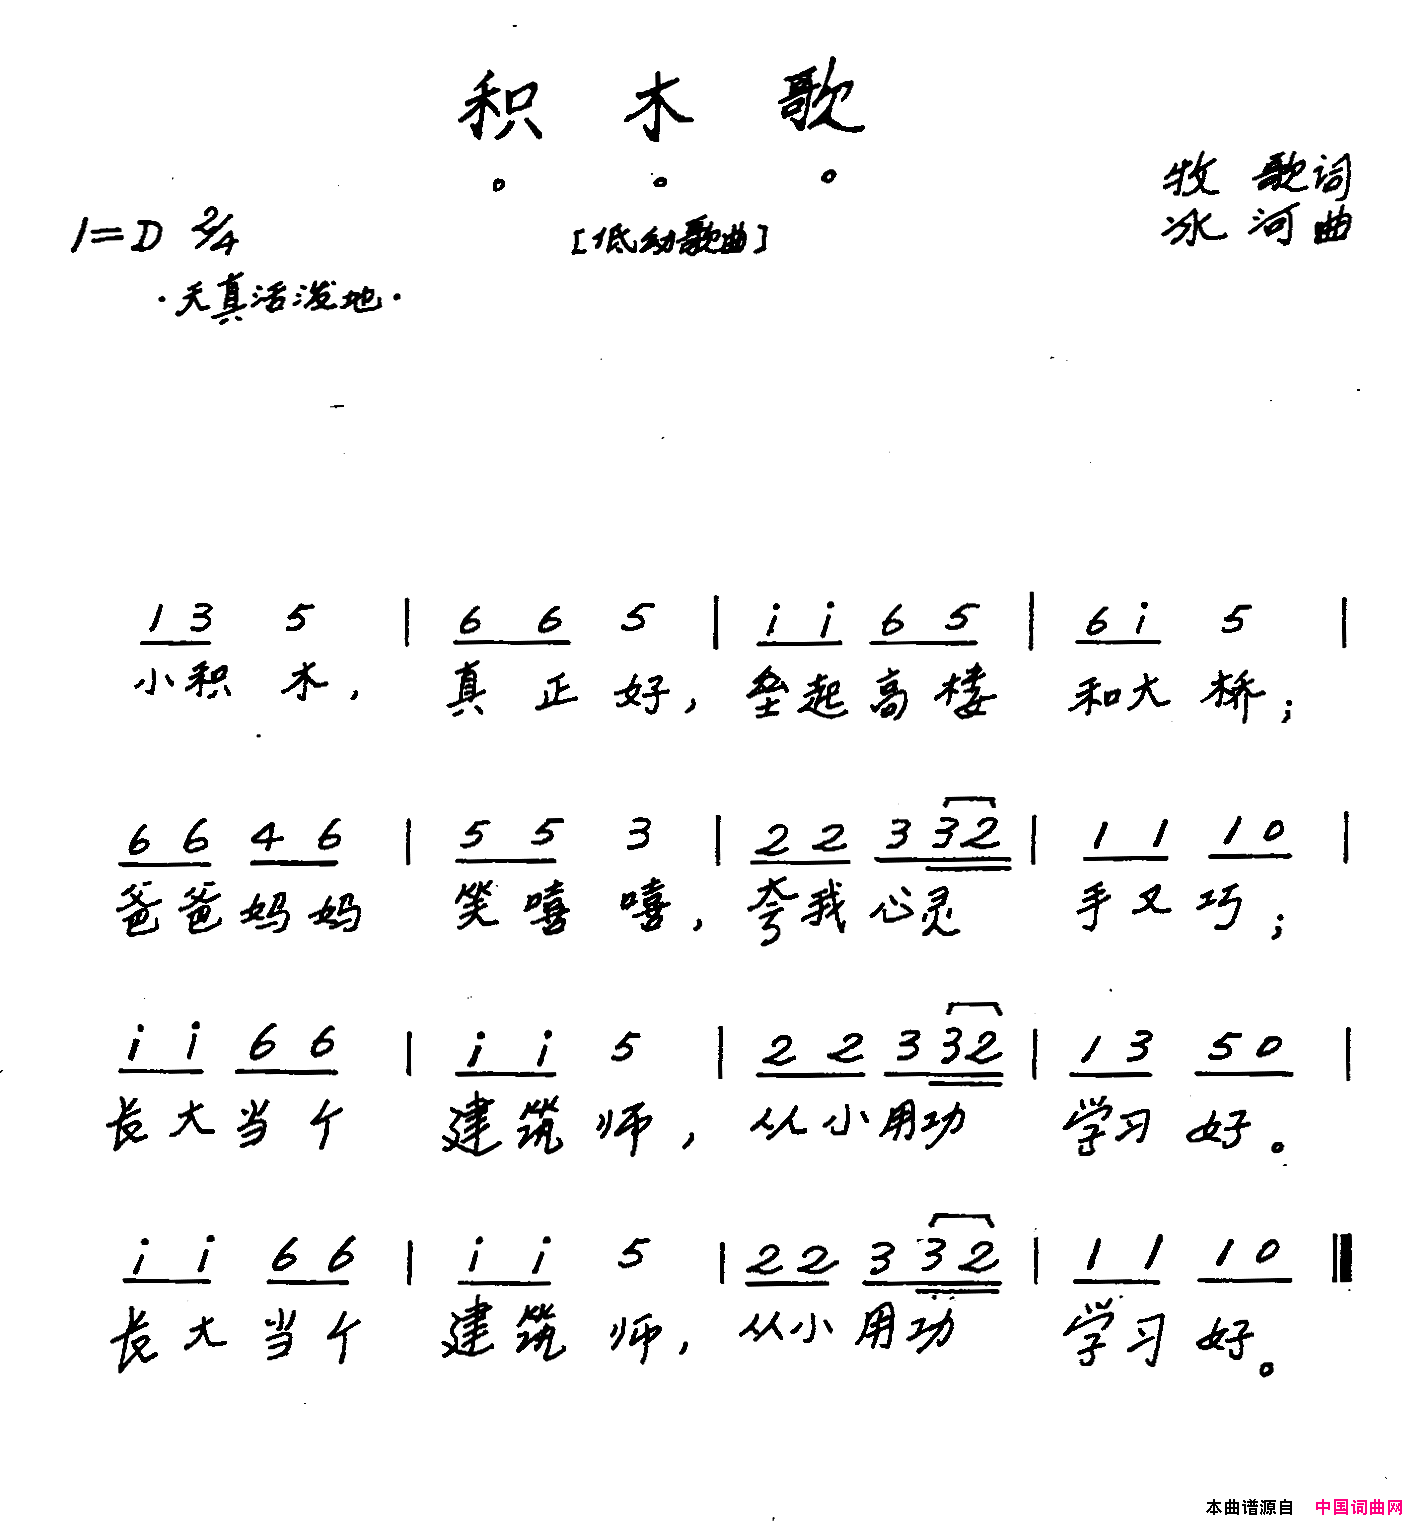 积木歌
牧 歌词
冰 河曲
1=D 2/4
[低幼歌曲]
·天真活泼地·
1 3 5 | 6 6 5 | i i 6 5 | 6 i 5 |
小积木，真正好，垒起高楼和大桥；
6 6 4 6 | 5 5 3 | 2 2 3 32 | 1 1 1 0 |
爸爸妈妈笑嘻嘻，夸我心灵手又巧；
i i 6 6 | i i 5 | 2 2 3 32 | 1 3 5 0 |
长大当个建筑师，从小用功学习好。
i i 6 6 | i i 5 | 2 2 3 32 | 1 1 1 0 ‖
长大当个建筑师，从小用功学习好。
本曲谱源自 中国词曲网